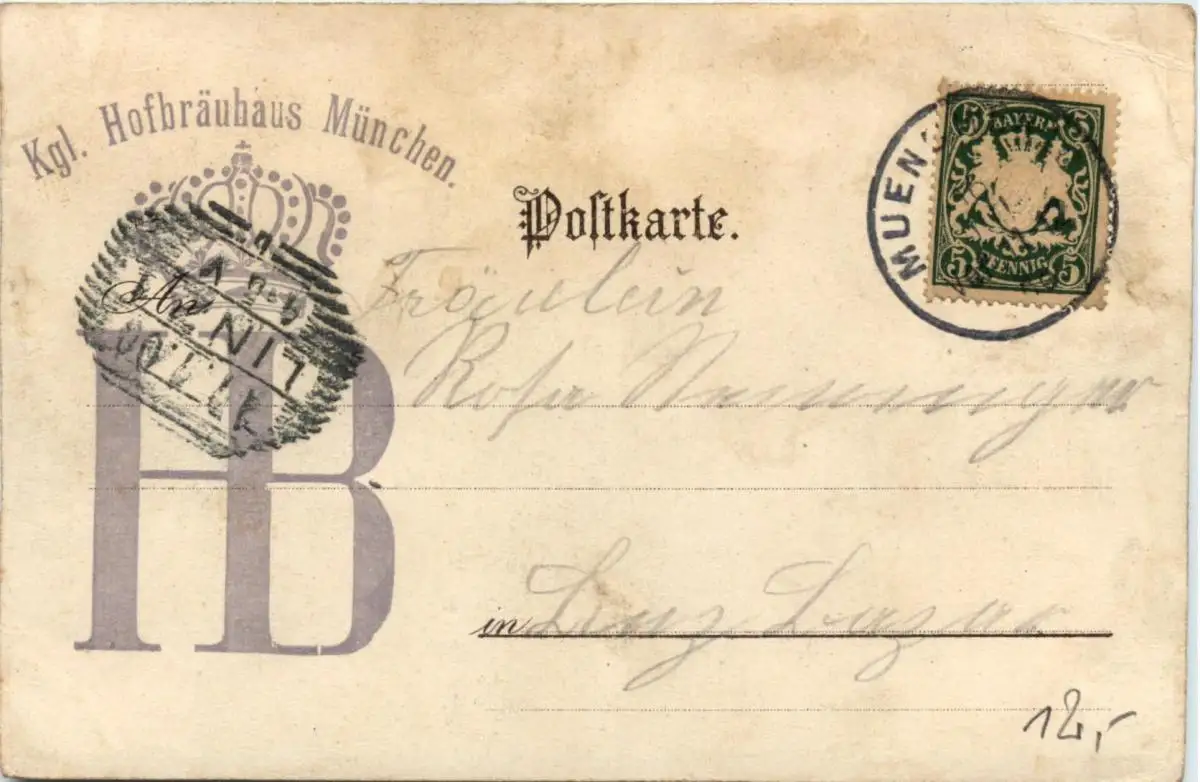 Kgl. Hofbräuhaus München.
Postkarte.
MUEN
5 BAYERN 5
5 PFENNIG 5
An
LINZ
HB
Fräulein
Rosa
in Linz
12,-